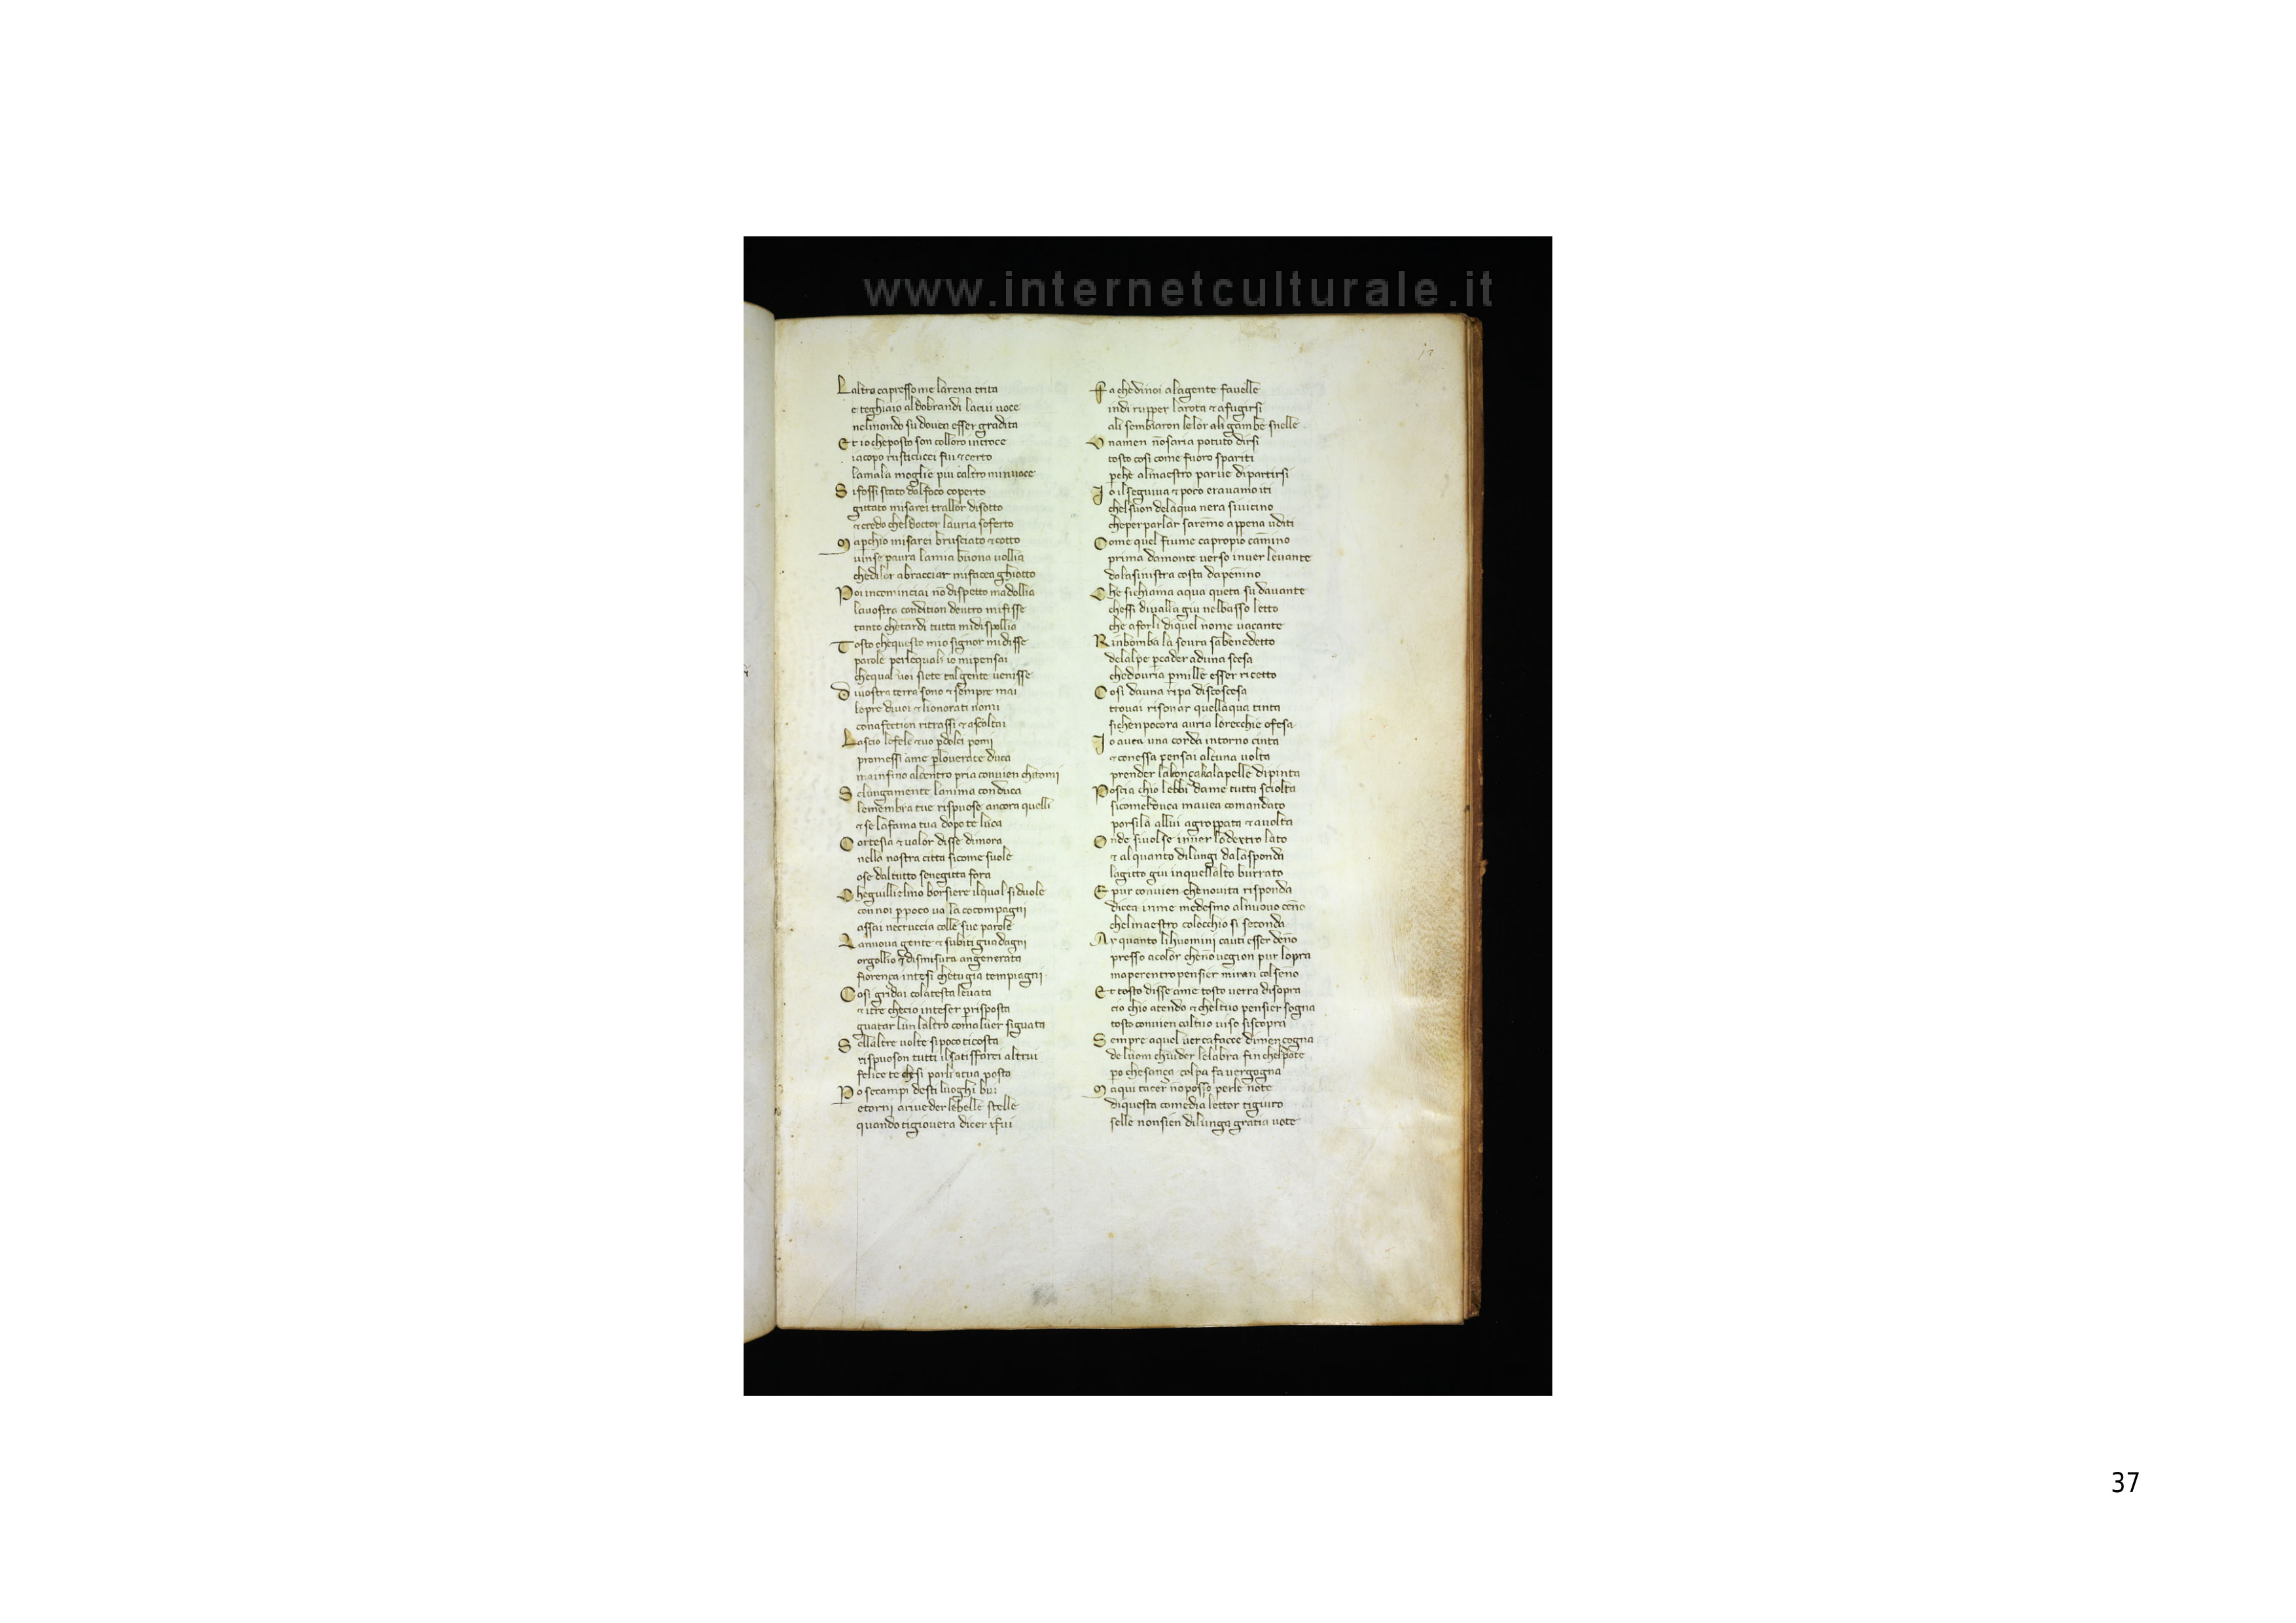 www.internetculturale.it
Laltro capresso me larena trita
e teghiaio aldobrandi lacui uoce
nelmondo su douea esser gradita
Et io cheposto son colloro incroce
iacopo rusticucci fui & certo
lamala moglie piu caltro minuoce
Sifossi stato dalfoco coperto
gittato misarei trallor disotto
& credo cheldoctor lauria soferto
Map̱chio misarei brusciato & cotto
uinse paura lamia buona uollia
chedilor abracciar mifacea ghiotto
Poi incominciai nō dispetto madollia
lauostra condition dentro mifisse
tanto chetardi tutta midispollia
Tosto chequesto mio signor midisse
parole perlequali io mipensai
chequal uoi siete tal gente uenisse
Diuostra terra sono & sempre mai
lopre diuoi & lionorati nomi
conafection ritrassi & ascoltai
Lascio lofele & uo p̱dolci pomi
promessi ame p̱louerace duca
mainfino alcentro pria conuien chetomi
Selungamente lanima conduca
lemembra tue rispuose ancora quelli
& se lafama tua dopo te luca
Cortesia & ualor disse dimora
nella nostra citta sicome suole
ose daltutto senegitta fora
Cheguillielmo borsiere ilqual siduole
con noi p̱poco ua la cocompagni
assai necruccia colle sue parole
Lanuoua gente & subiti guadagni
orgollio & dismisura angenerata
fiorença intesi chetu gia tempiagni
Cosi gridai colatesta leuata
& itre checio inteser p̱risposta
guatar lun laltro comaluer siguata
Sellaltre uolte sipoco ticosta
rispuoson tutti ilsatisffarei altrui
felice te chesi parli atua posta
Po secampi desti luoghi bui
etorni ariueder lebelle stelle
quando tigiouera dicer ifui
Fa chedinoi alagente fauelle
indi rupper larota & afugirsi
ali sembiaron lelor ali gambe snelle
Unamen nosaria potuto dirsi
tosto cosi come fuoro spariti
p̱che almaestro parue dipartirsi
Io ilseguiua & poco erauamo iti
chelsuon delaqua nera siuicino
cheperparlar saremo appena uditi
Come quel fiume capropio camino
prima damonte uerso inuer leuante
dalasinistra costa dapenino
Che sichiama aqua queta su dauante
chessi diualla giu nelbasso letto
che aforli diquel nome uacante
Rinbomba la soura sābenedetto
delalpe p̱cader aduna scesa
chedouria p̱mille esser ricetto
Cosi dauna ripa discoscesa
trouai risonar quellaqua tinta
sichenpocora auria lorecchie ofesa
Io auea una corda intorno cinta
& conessa pensai alcuna uolta
prender lalonça alapelle dipinta
Poscia chio lebbi dame tutta sciolta
sicomelduca mauea comandato
porsila allui agroppata & auolta
Onde siuolse inuer lodextro lato
& alquanto dilungi dalasponda
lagitto giu inquellalto burrato
E pur conuien chenouita risponda
dicea inme medesmo alnuouo ceno
chelmaestro colocchio si seconda
Ay quanto lihuomini cauti esser deno
presso acolor cheno uegion pur lopra
maperentro pensier miran colseno
Et tosto disse ame tosto uerra disopra
cio chio atendo & cheltuo pensier sogna
tosto conuien caltuo uiso siscopra
Sempre aquel uer cafacce dimençogna
de luom chiuder lelabra fin chelpote
po chesança colpa fa uergogna
Maqui tacer noposso perle note
diquesta comedia lettor tigiuro
selle nonsien dilunga gratia uote
37